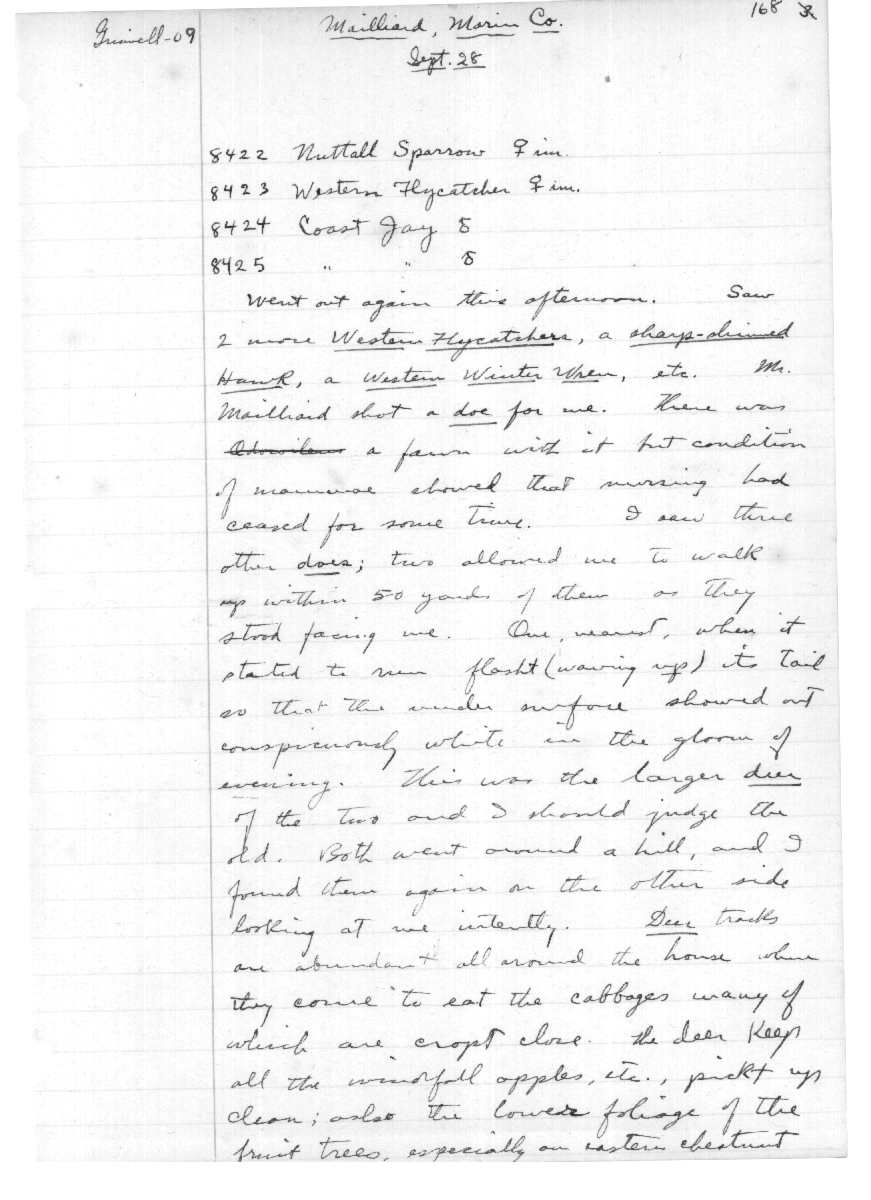 Grinnell-09
Mailliard, Marin Co.
168
Sept. 28
8422 Nuttall Sparrow ♀ im.
8423 Western Flycatcher ♀ im.
8424 Coast Jay ♂
8425 " " ♂
Went out again this afternoon. Saw
2 more Western Flycatchers, a sharp-shinned
Hawk, a Western Winter Wren, etc. Mr.
Mailliard shot a doe for me. There was
a fawn with it but condition
of mammae showed that nursing had
ceased for some time. I saw three
other does; two allowed me to walk
up within 50 yards of them as they
stood facing me. One, nearest, when it
started to run flasht (waving up) its tail
so that the under surface showed out
conspicuously white in the gloom of
evening. This was the larger deer
of the two and I should judge the
old. Both went around a hill, and I
found them again on the other side
looking at me intently. Deer tracks
are abundant all around the house where
they come to eat the cabbages many of
which are cropt close. The deer keep
all the windfall apples, etc., pickt up
clean; aslso the lower foliage of the
fruit trees, especially an eastern chestnut